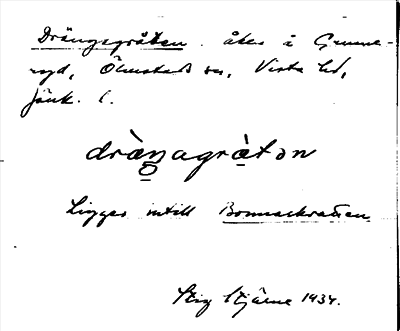 Drängsgråten. åker i Grunne-
ryd, Ölmstads sn, Vista hd,
Jönk. l.
dràŋagràtən
Ligger intill Bonnaskratten.
Stig Stjärne 1934.